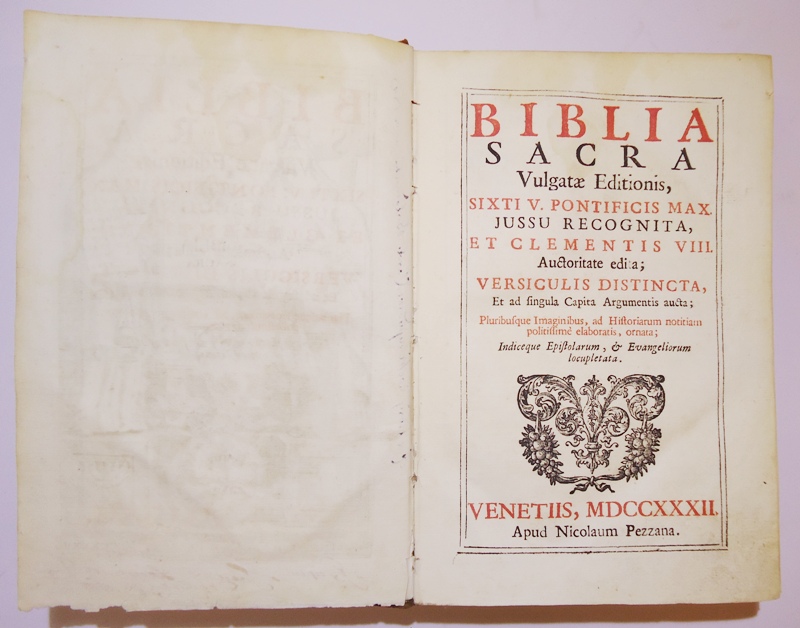 BIBLIA
SACRA
Vulgatæ Editionis,
SIXTI V. PONTIFICIS MAX.
JUSSU RECOGNITA,
ET CLEMENTIS VIII.
Auctoritate edita;
VERSICULIS DISTINCTA,
Et ad ſingula Capita Argumentis aucta;
Pluribuſque Imaginibus, ad Hiſtoriarum notitiam
politiſſimè elaboratis, ornata;
Indiceque Epiſtolarum, & Evangeliorum
locupletata.
VENETIIS, MDCCXXXII.
Apud Nicolaum Pezzana.